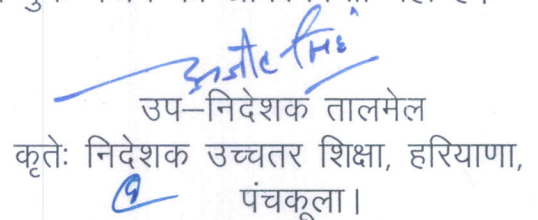 अजीत सिंह
उप–निदेशक तालमेल
कृतेः निदेशक उच्चतर शिक्षा, हरियाणा,
पंचकूला।